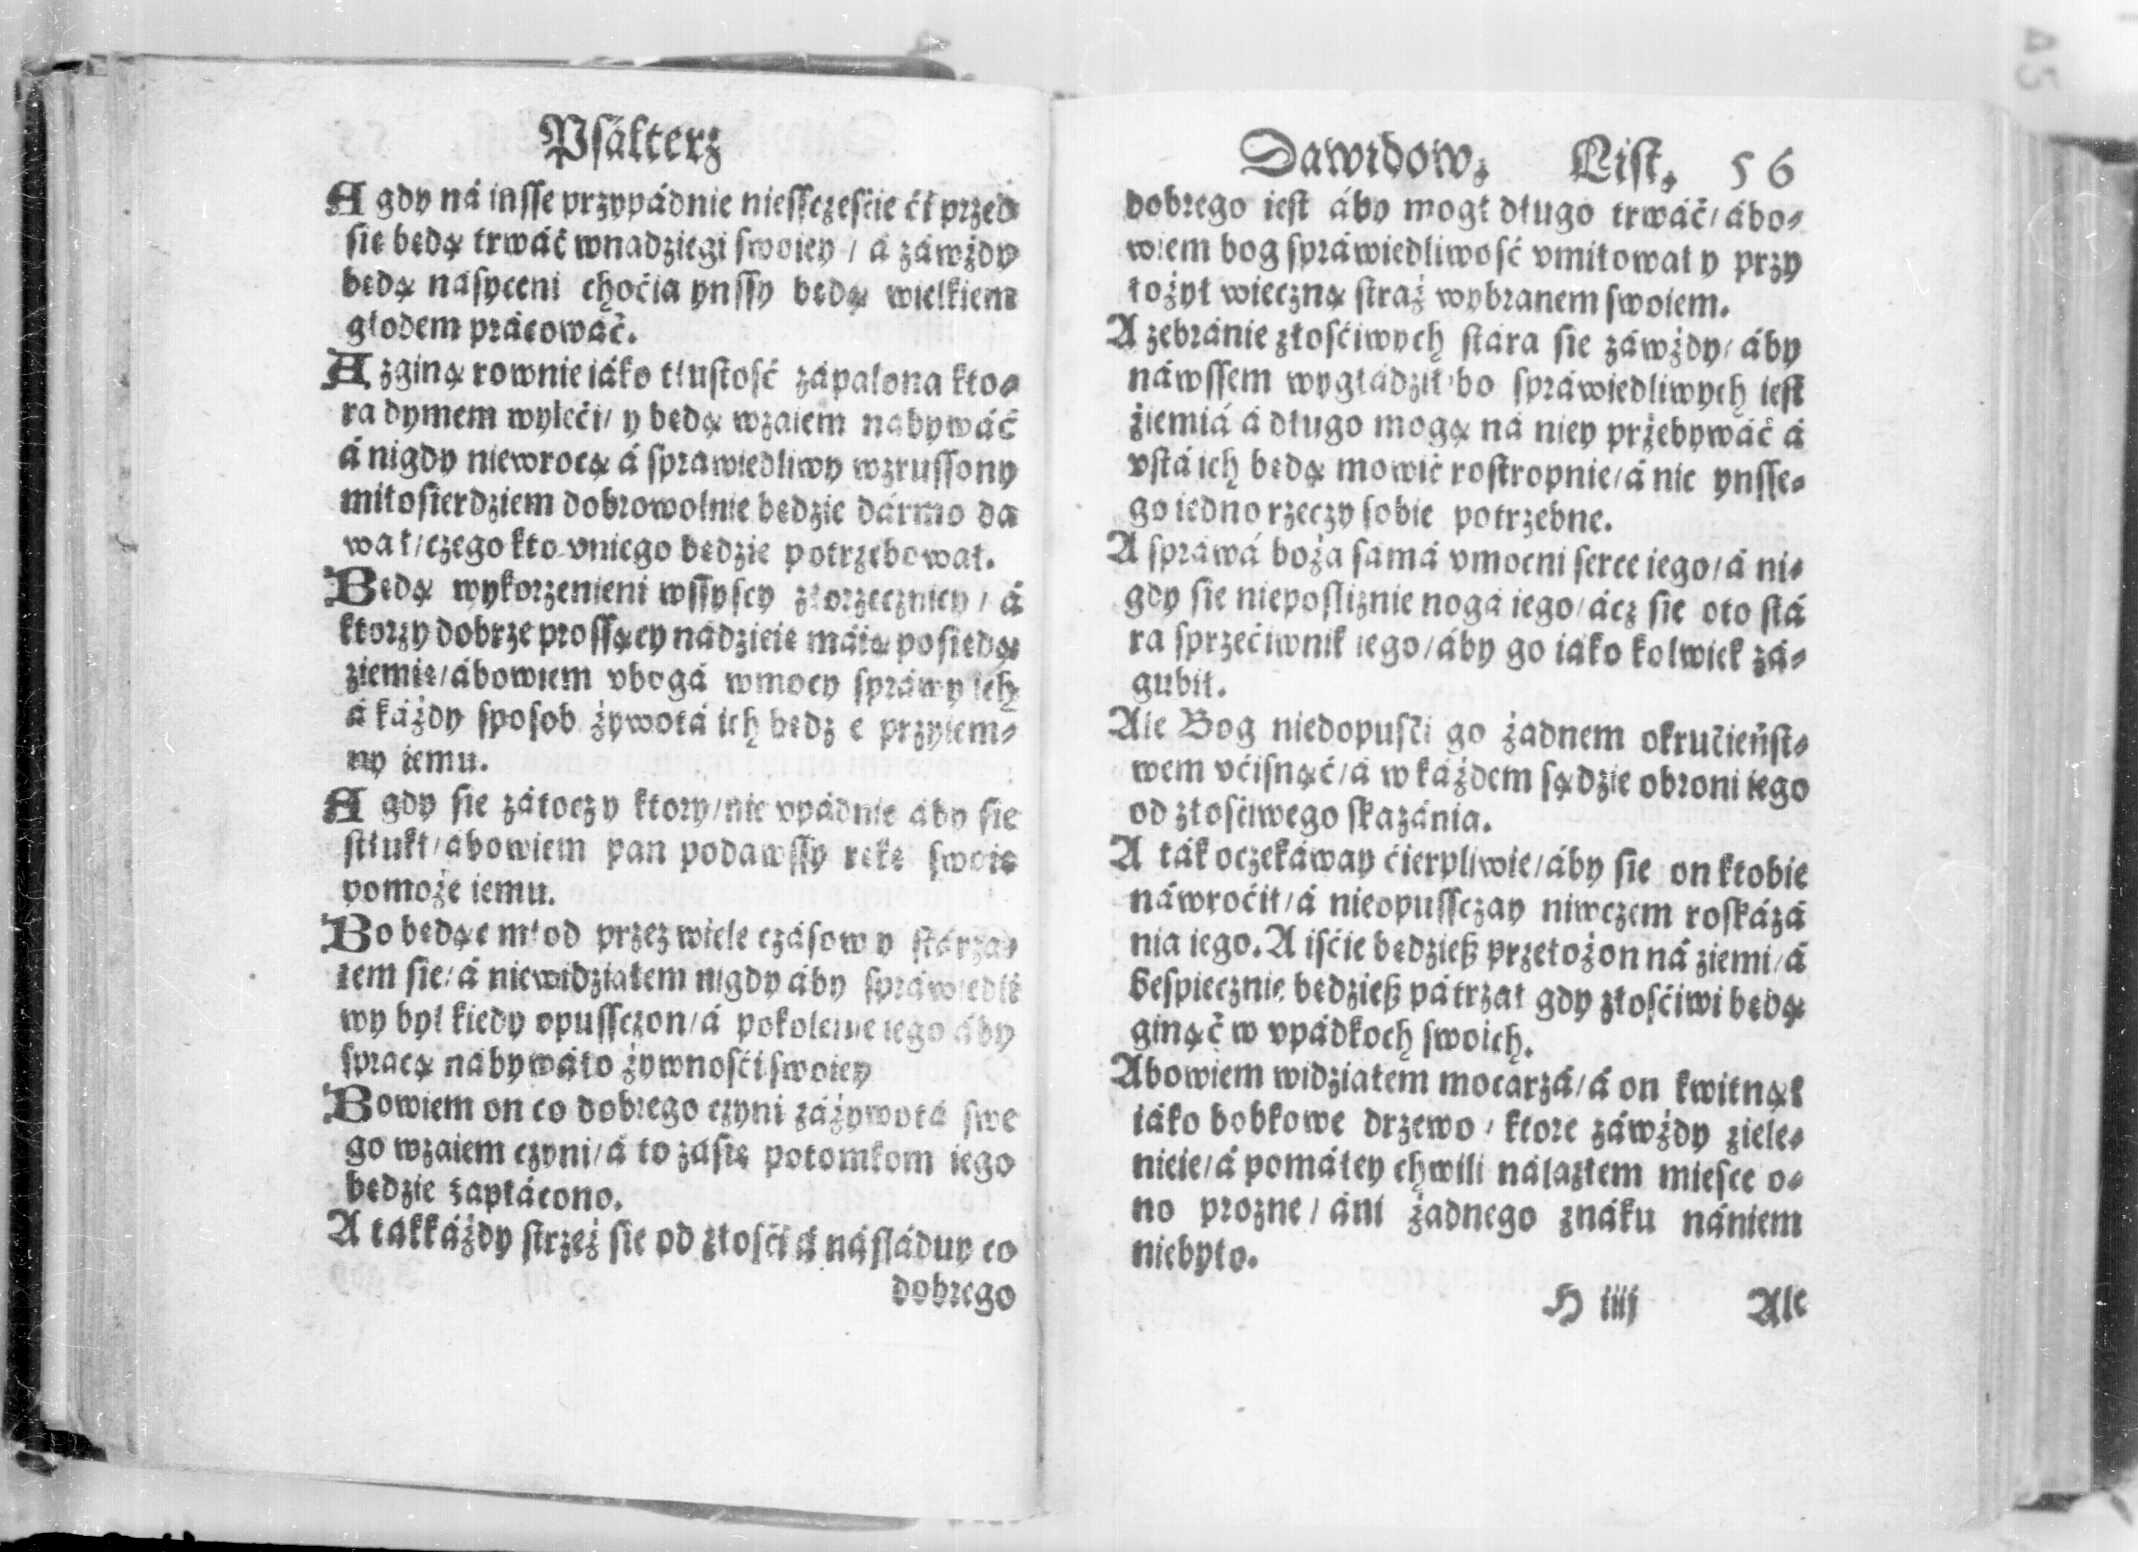 Psálterz
A gdy ná insse przypádnie niessczeście ći przed
się będą trwáć wnadzięgi swoiey / á záwżdy
będą násyceni choćia ynssy będą wielkiem
głodem prácowáć.
A zginą rownie iáko tłustość zápalona kto-
ra dymem wyleći / y będą wzaiem nabywáć
á nigdy niewrocą á sprawiedliwy wzrussony
miłosierdziem dobrowolnie będzie dármo da
wał / czego kto vniego będzie potrzebował.
Będą wykorzenieni wssyscy złorzecznicy / á
ktorzy dobrze prossący nádzieię máią posiędą
ziemię / ábowiem vbogá wmocy spráwy ich
á káżdy sposob żywotá ich będz e przyiem-
ny iemu.
A gdy sie zátoczy ktory / nie vpádnie áby sie
stłukł / abowiem pan podawssy rękę swoię
pomoże iemu.
Bo będąc młod przez wiele czásow y stárza-
łem sie / á niewidziałem nigdy áby spráwiedli
wy był kiedy opussczon / á pokolenie iego áby
spracą nábywáło żywnośći swoiey
Bowiem on co dobrego czyni záżywotá swe
go wzaiem czyni / á to zásię potomkom iego
będzie zapłácono.
A takkáżdy strzeż sie od złośći á násláduy co
dobrego
Dawidow. List. 56
dobrego iest áby mogł długo trwáć / ábo-
wiem bog spráwiedliwość vmiłował y przy
łożył wieczną straż wybranem swoiem.
A zebránie złośćiwych stára sie záwżdy / áby
náwssem wygłádził / bo spráwiedliwych iest
źiemiá á długo mogą ná niey przebywáć á
vstá ich będą mowić rostropnie / á nic ynsse-
go iedno rzeczy sobie potrzebne.
A spráwá boża sámá vmocni serce iego / á ni-
gdy sie niepośliznie nogá iego / ácz sie oto stá
ra sprzećiwnik iego / áby go iáko kolwiek zá-
gubił.
Ale Bog niedopuśći go żadnem okrućieńst-
wem vćisnąć / á w káżdem sądzie obroni iego
od złośćiwego skazánia.
A ták oczekáway ćierpliwie / áby sie on ktobie
náwroćił / á nieopussczay niwczem roskázá
nia iego. A iśćie będzieß przełożon ná ziemi / á
bespiecznie będzieß pátrzał gdy złośćiwi będą
ginąć w vpádkoch swoich.
Abowiem widziałem mocarzá / á on kwitnął
iáko bobkowe drzewo / ktore záwżdy ziele-
nieie / á pomáłey chwili nálazłem miesce o-
no prozne / áni żadnego znáku nániem
niebyło.
H iiij Ale